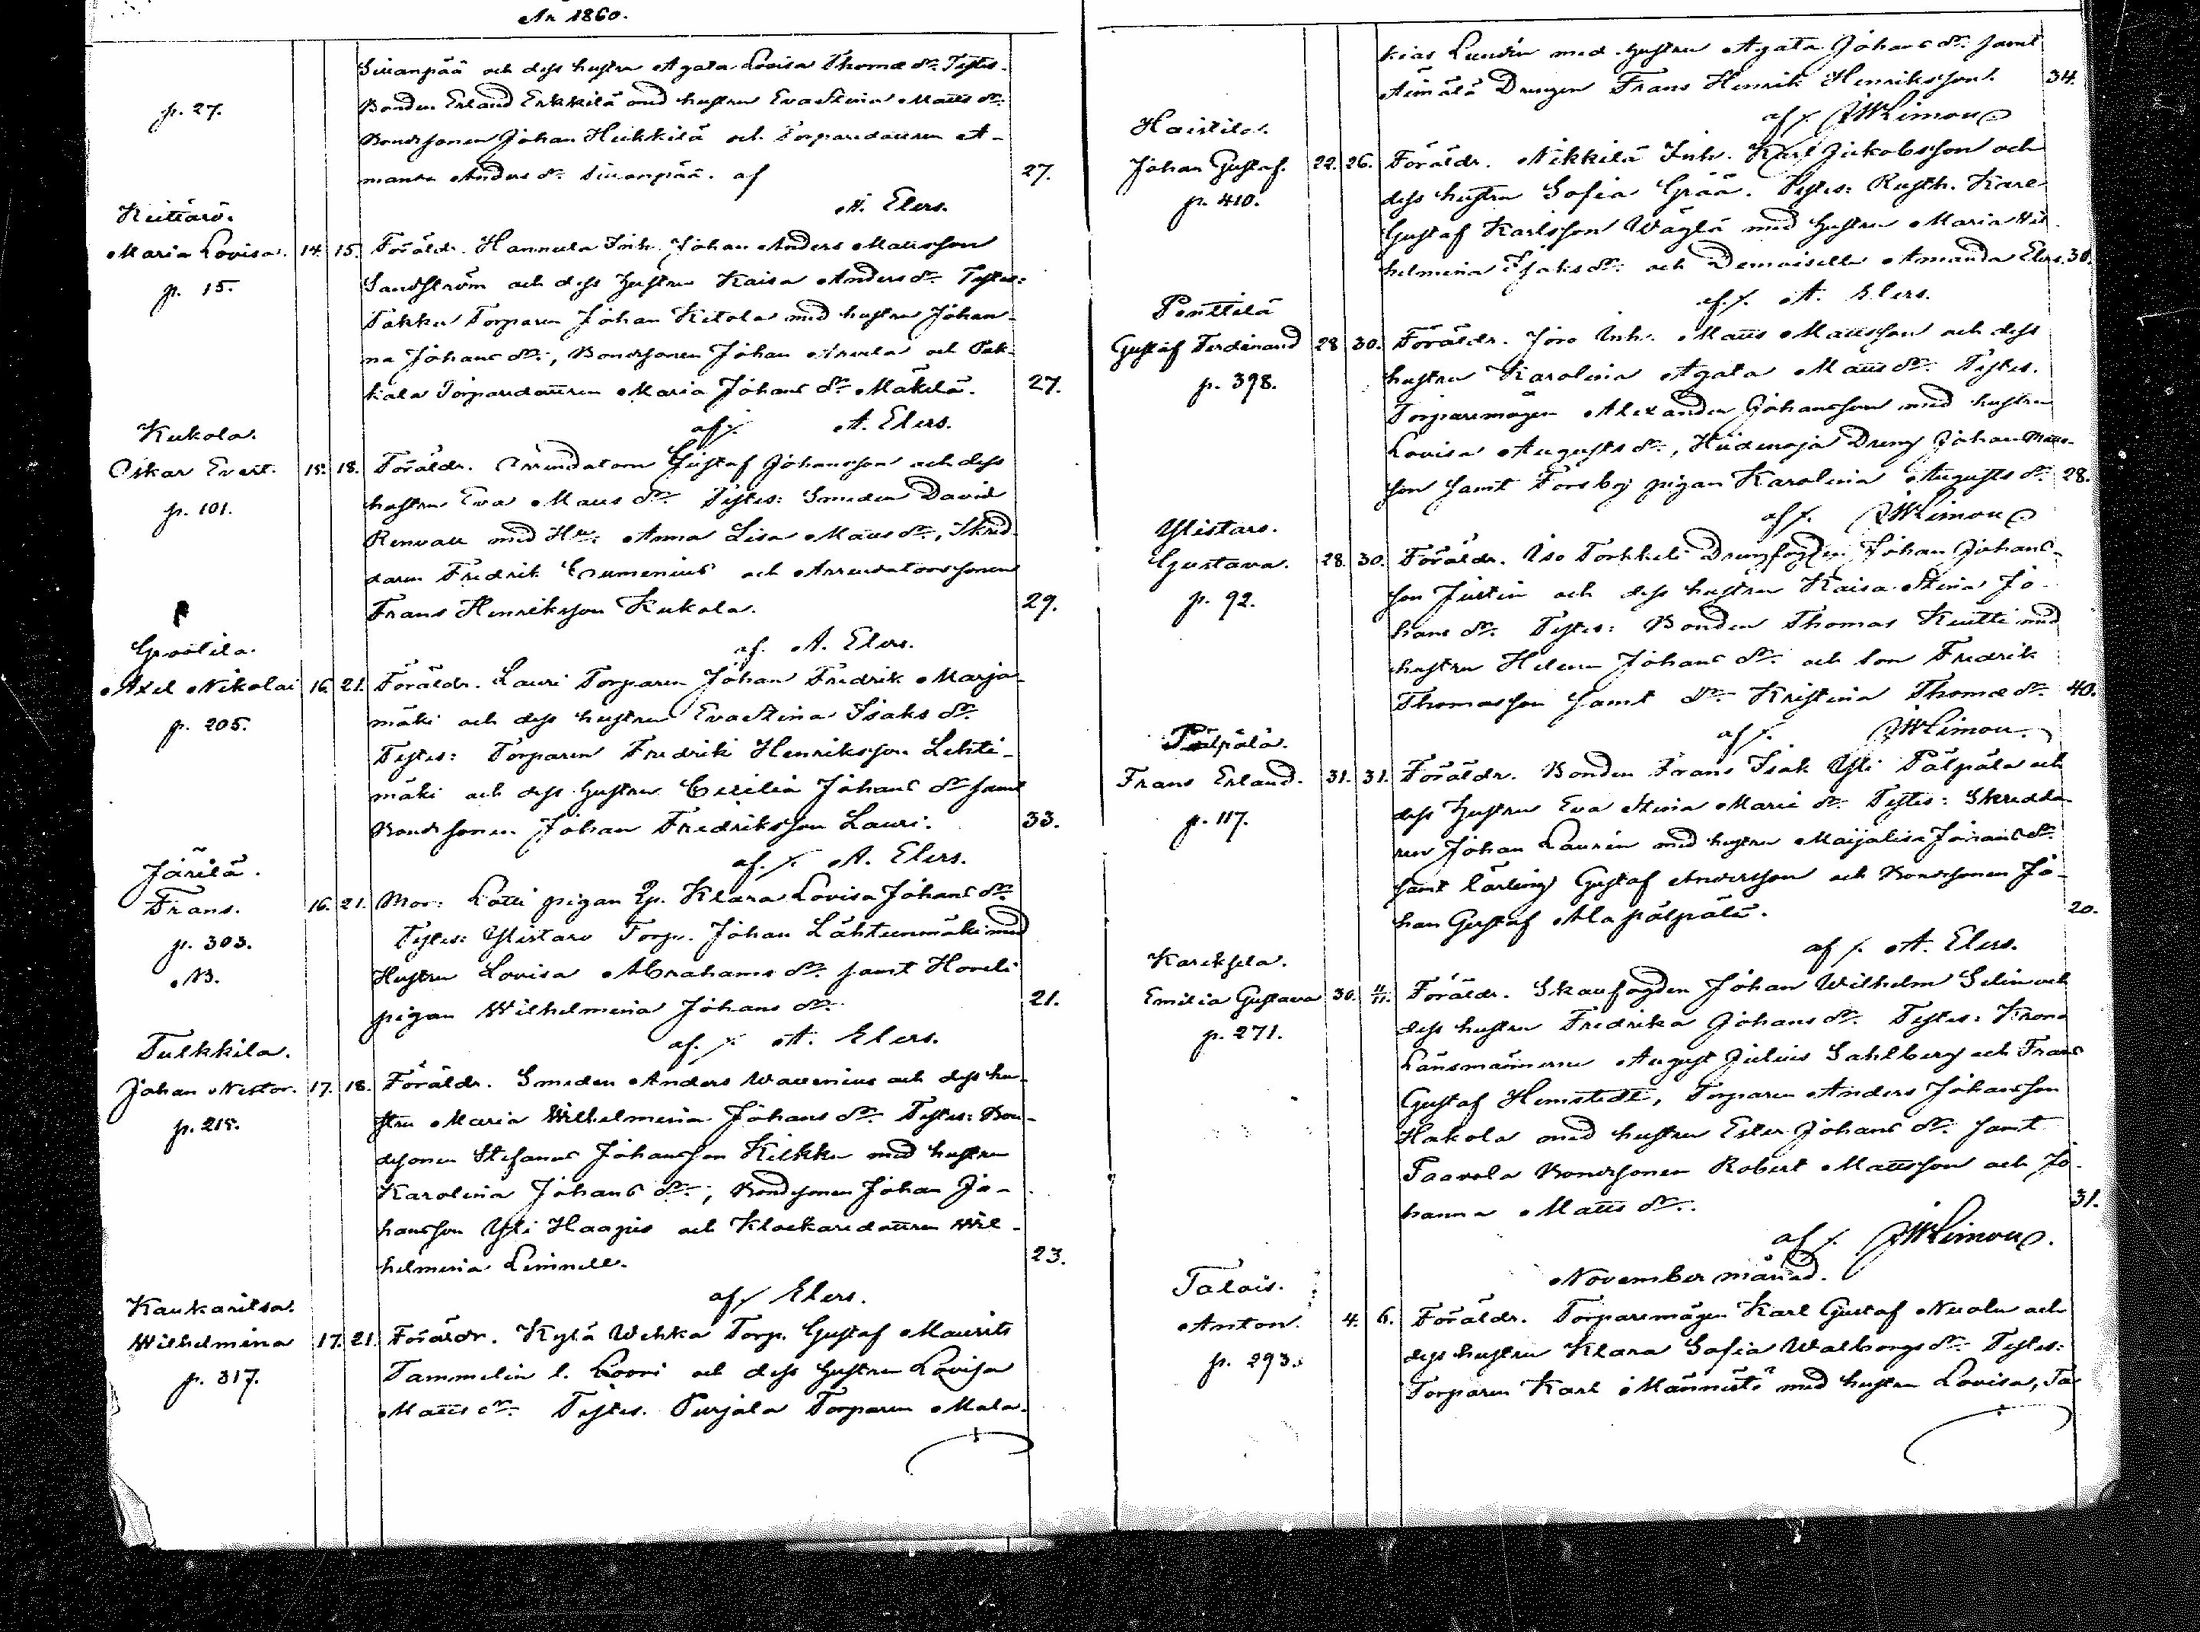 År 1860.
Siuanpää och dess hustru Agata Lovisa Thomæ dr. Testes.
p. 27.
Bonden Erland Erkkilä med hustru Eva Stina Matts dr.
Bondsonen Johan Heikkilä och Torparedottren A-
manda Anders dr. Siuanpää. af 27.
A. Elers.
Keittärö.
Maria Lovisa. 14. 15. Föräldr. Hannula Inh. Johan Anders Mattsson
p. 15.
Sandström och dess hustru Kaisa Anders dr. Testes:
Takku Torparen Johan Ketola med hustru Johan-
na Johans dr., Bondsonen Johan och Pak-
kala Torparedottren Maria Johans dr. Mäkelä. 27.
af /. A. Elers.
Kukola.
Oskar Evert. 15. 18. Föräldr. Arrendatorn Gustaf Johansson och dess
p. 101.
hustru Eva Matts dr. Testes: Smeden David
Renvall med Hu: Anna Lisa Matts dr., Skräd-
daren Fredrik Eumenius och Arrendatorssonen
Frans Henriksson Kukola. 29.
af. A. Elers.
Groötila.
Axel Nikolai 16. 21. Föräldr. Lauri Torparen Johan Fredrik Marja-
p. 205.
mäki och dess hustru Eva Stina Isaks dr.
Testes: Torparen Fredrik Henriksson Lehti-
mäki och dess hustru Cecilia Johans dr samt
Bondsonen Johan Fredriksson Lauri. 33.
af. /. A. Elers.
Järilä.
Frans. 16. 21. Mor: Lotti pigan Ep. Klara Lovisa Johans dr.
p. 303.
NB.
Testes: Ylistaro Torp. Johan Lähteenmäki med
Hustru Lovisa Abrahams dr. samt Hoveli
pigan Wilhelmina Johans dr. 21.
af. /. A. Elers.
Tulkkila.
Johan Nestor. 17. 18. Föräldr. Smeden Anders Wallenius och dess hu-
p. 215.
stru Maria Wilhelmina Johans dr. Testes: Bon-
desonen Stefanus Johansson Kiekku med hustru
Karolina Johans dr., Bondsonen Johan Jo-
hansson Yli Haapio och Klockaredottren Wil-
helmina Limnell. 23.
af/ Elers.
Kaukaritsa.
Wilhelmina 17. 21. Föräldr. Kylä Wehka Torp. Gustaf Maurits
p. 317.
Tammelin l. Loori och dess hustru Lovisa
Matts dr. Testes. Purjala Torparen Mala-
kias Lundén med hustru Agata Johans dr. samt
Äimälä Drengen Frans Henrik Henriksson. 34.
af /. JWLimon
Haistila.
Johan Gustaf. 22. 26. Föräldr. Nikkilä Inh. Karl Jakobsson och
p. 410.
dess hustru Sofia Grää. Testes: Rusth. Karl
Gustaf Karlsson Wäglä med hustru Maria Wil-
helmina Isaks dr. och Demoiselle Amanda Elers. 30.
af. /. A. Elers.
Penttilä
Gustaf Ferdinand 28 30. Föräldr. Joro Inh. Matts Mattsson och dess
p. 398.
hustru Karolina Agata Matts dr. Testes.
Torparemågen Alexander Johansson med hustru
Lovisa Augusts dr., Hiidenoja Dreng Johan Matts-
son samt Forsby pigan Karolina Augusts dr. 28.
af /. JWLimon
Ylistaro.
Gustava. 28. 30. Föräldr. Iso Torkkeli Drengfogden Johan Johans-
p. 92.
son Justin och dess hustru Kaisa Stina Jo-
hans dr. Testes: Bonden Thomas Keutti med
hustru Helena Johans dr. och Son Fredrik
Thomasson samt dr. Kristina Thomæ dr. 40.
af /. JWLimon.
Pälpälä.
Frans Erland. 31. 31. Föräldr. Bonden Frans Isak Yli Pälpälä och
p. 117.
dess hustru Eva Stina Marie dr. Testes: Skrädda-
ren Johan Laurén med hustru Maijalisa Johans dr.
samt lärling Gustaf Andersson och Bondsonen Jo-
han Gustaf Ala pälpälä. 20.
af /. A. Elers.
Kareksela.
Emilia Gustava 30. 4/11. Föräldr. Skaufogden Johan Wilhelm Selin och
p. 271.
dess hustru Fredrika Johans dr. Testes: Krono
Länsmännerne August Julius Sahlberg och Frans
Gustaf Hemstedt, Torparen Anders Johansson
Hakola med hustru Ester Johans dr. samt
Paavola Bondsonen Robert Mattsson och Jo-
hanna Matts dr. 31.
af /. JWLimon.
November månad.
Talois.
Anton. 4. 6. Föräldr. Torparemågen Karl Gustaf Nuolu och
p. 293.
dess hustru Klara Sofia Walborgs dr. Testes:
Torparen Karl Männistö med hustru Lovisa, Ta-